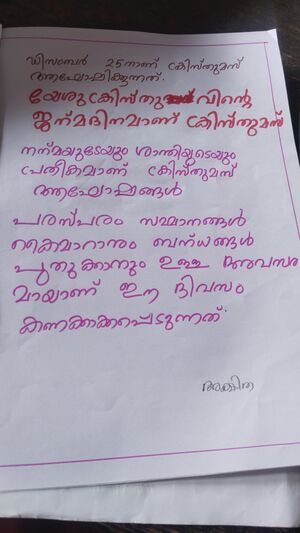 ഡിസംബർ 25നാണ് ക്രിസ്തുമസ്
ആഘോഷിക്കുന്നത്.
യേശു ക്രിസ്തുവിന്റെ
ജന്മദിനമാണ് ക്രിസ്തുമസ്
നന്മയുടേയും ശാന്തിയുടെയും
പ്രതീകമാണ് ക്രിസ്തുമസ്
ആഘോഷങ്ങൾ
പരസ്പരം സമ്മാനങ്ങൾ
കൈമാറാനും ബന്ധങ്ങൾ
പുതുക്കാനും ഉള്ള അവസര
മായാണ് ഈ ദിവസം
കണക്കാക്കപ്പെടുന്നത്.